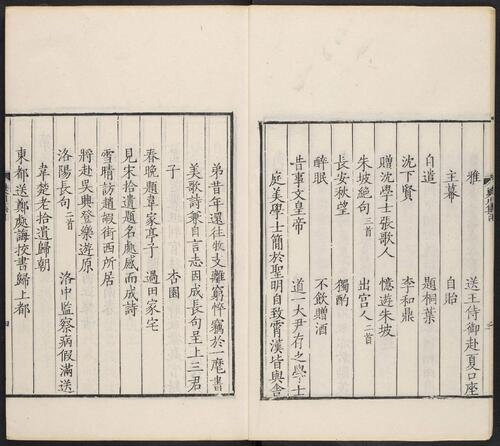 雅　送王侍御赴夏口座
主幕　自貽
自遣　題桐葉
沈下賢　李和鼎
贈沈學士張歌人　憶遊朱坡
朱坡絕句三首　出宮人二首
長安秋望　獨酌
醉眠　不飲贈酒
昔事文皇帝　道一大尹存之學士
庭美學士簡於聖明自致霄漢皆與舍
弟昔年還往牧支離窮悴竊於一麾書
美歌詩兼自言志因成長句呈上三君
子　杏園
春晚題韋家亭子　過田家宅
見宋拾遺題名處感而成詩
雪晴訪趙嘏街西所居
將赴吳興登樂遊原
洛陽長句二首　洛中監察病假滿送
韋楚老拾遺歸朝
東都送鄭處誨校書歸上都
四